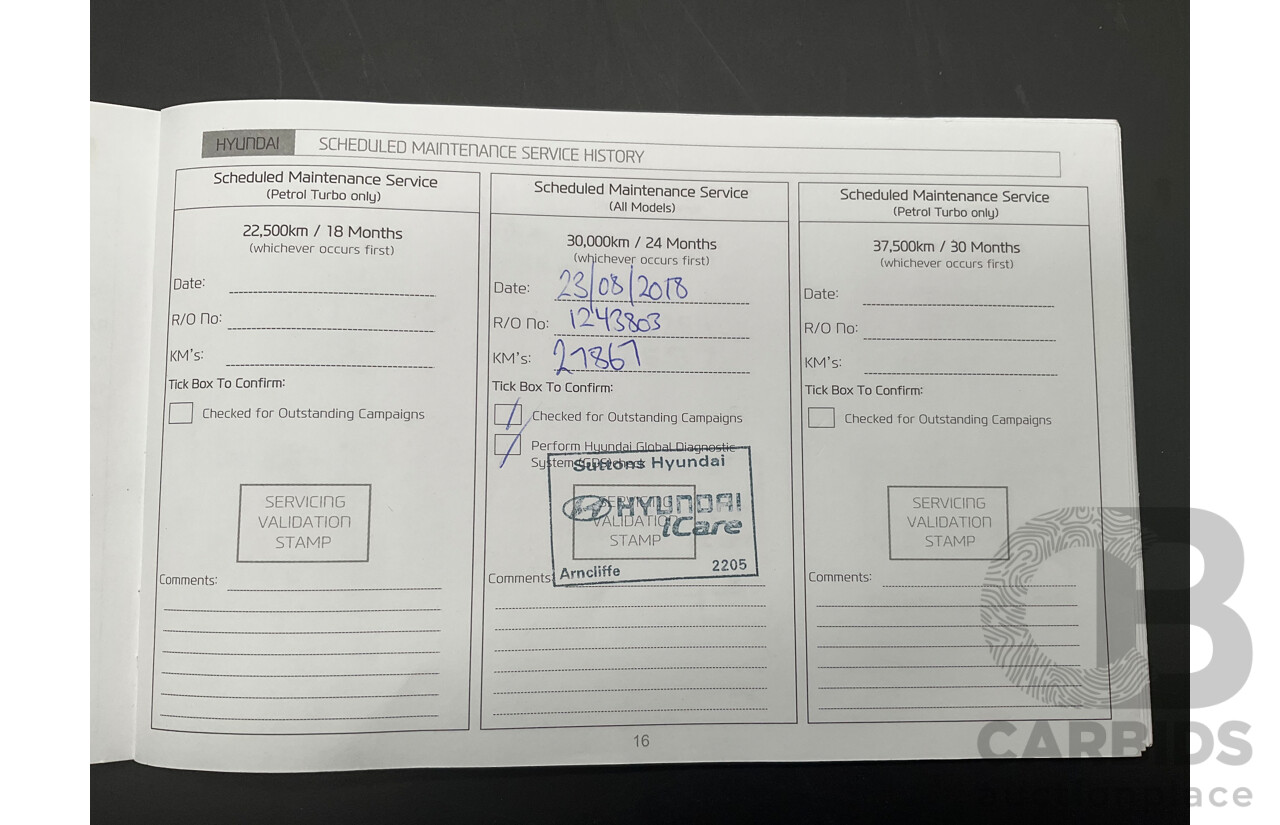 HYUNDAI SCHEDULED MAINTENANCE SERVICE HISTORY
Scheduled Maintenance Service
(Petrol Turbo only)
22,500km / 18 Months
(whichever occurs first)
Date:
R/O No:
KM's:
Tick Box To Confirm:
Checked for Outstanding Campaigns
SERVICING
VALIDATION
STAMP
Comments:
Scheduled Maintenance Service
(All Models)
30,000km / 24 Months
(whichever occurs first)
Date: 23/08/2018
R/O No: 1243803
KM's: 27867
Tick Box To Confirm:
Checked for Outstanding Campaigns
Perform Hyundai Global Diagnostic
System
Suttons Hyundai
HYUNDAI
iCare
VALIDATION
STAMP
Arncliffe 2205
Comments:
Scheduled Maintenance Service
(Petrol Turbo only)
37,500km / 30 Months
(whichever occurs first)
Date:
R/O No:
KM's:
Tick Box To Confirm:
Checked for Outstanding Campaigns
SERVICING
VALIDATION
STAMP
Comments:
16
CB
CARBIDS
auctionplace